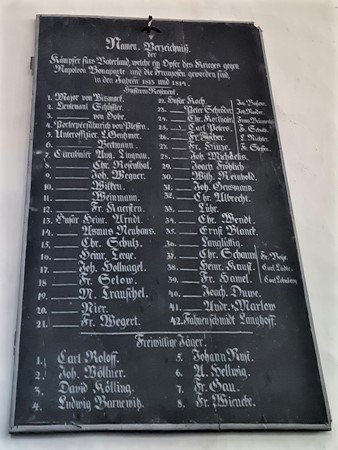 Namen-Verzeichniß
der
Kämpfer fürs Vaterland, welche ein Opfer des Krieges gegen
Napoleon Bonaparte und die Franzosen geworden sind,
in den Jahren 1813 und 1814.
Husaren Regiment.
1. Major von Bismark.
2. Lieutenant Schüssler.
3. von Bohr.
4. Porteepeefähnrich von Plessen.
5. Unterofficier
6. Beckmann.
7. Carabinier Aug. Lingnau.
8. Chr. Rosenthal.
9. Joh. Wegner.
10. Wilken.
11. Weinmann.
12. Fr. Karsten.
13. Husar Heinr. Arndt.
14. Asmus Neuhaus.
15. Chr. Schulz.
16. Heinr. Lege.
17. Joh. Hollnagel.
18. Fr. Selow.
19. M. Trauschel.
20. Nier.
21. Fr. Wegert.
22. Husar Koch.
23. Peter Schröder
24. Chr.
25. Carl Peters.
26. Fr. Fischer.
27. Fr. Hinze.
28. Joh. Michaelis.
29. Joach. Fröhlich
30. Wilh. Reinhold.
31. Joh.
32. Chr. Albrecht.
33. Lühr.
34. Chr. Wendt.
35. Ernst Blanck.
36.
37. Chr. Schaum
38. Heinr. Kunst.
39. Fr. Hamel.
40. Joach. Duwe.
41. Andr. Marlow
42. Fahnenschmidt Langhoff.
Fr. Schult.
Carl Lüdte.
Freiwillige Jäger.
1. Carl Roloff.
2. Joh. Völlner.
3. David Kölling.
4. Ludwig Barnewitz.
5. Johann Rust.
6. A. Hellwig.
7. Fr. Gau.
8. Fr. Wiencke.